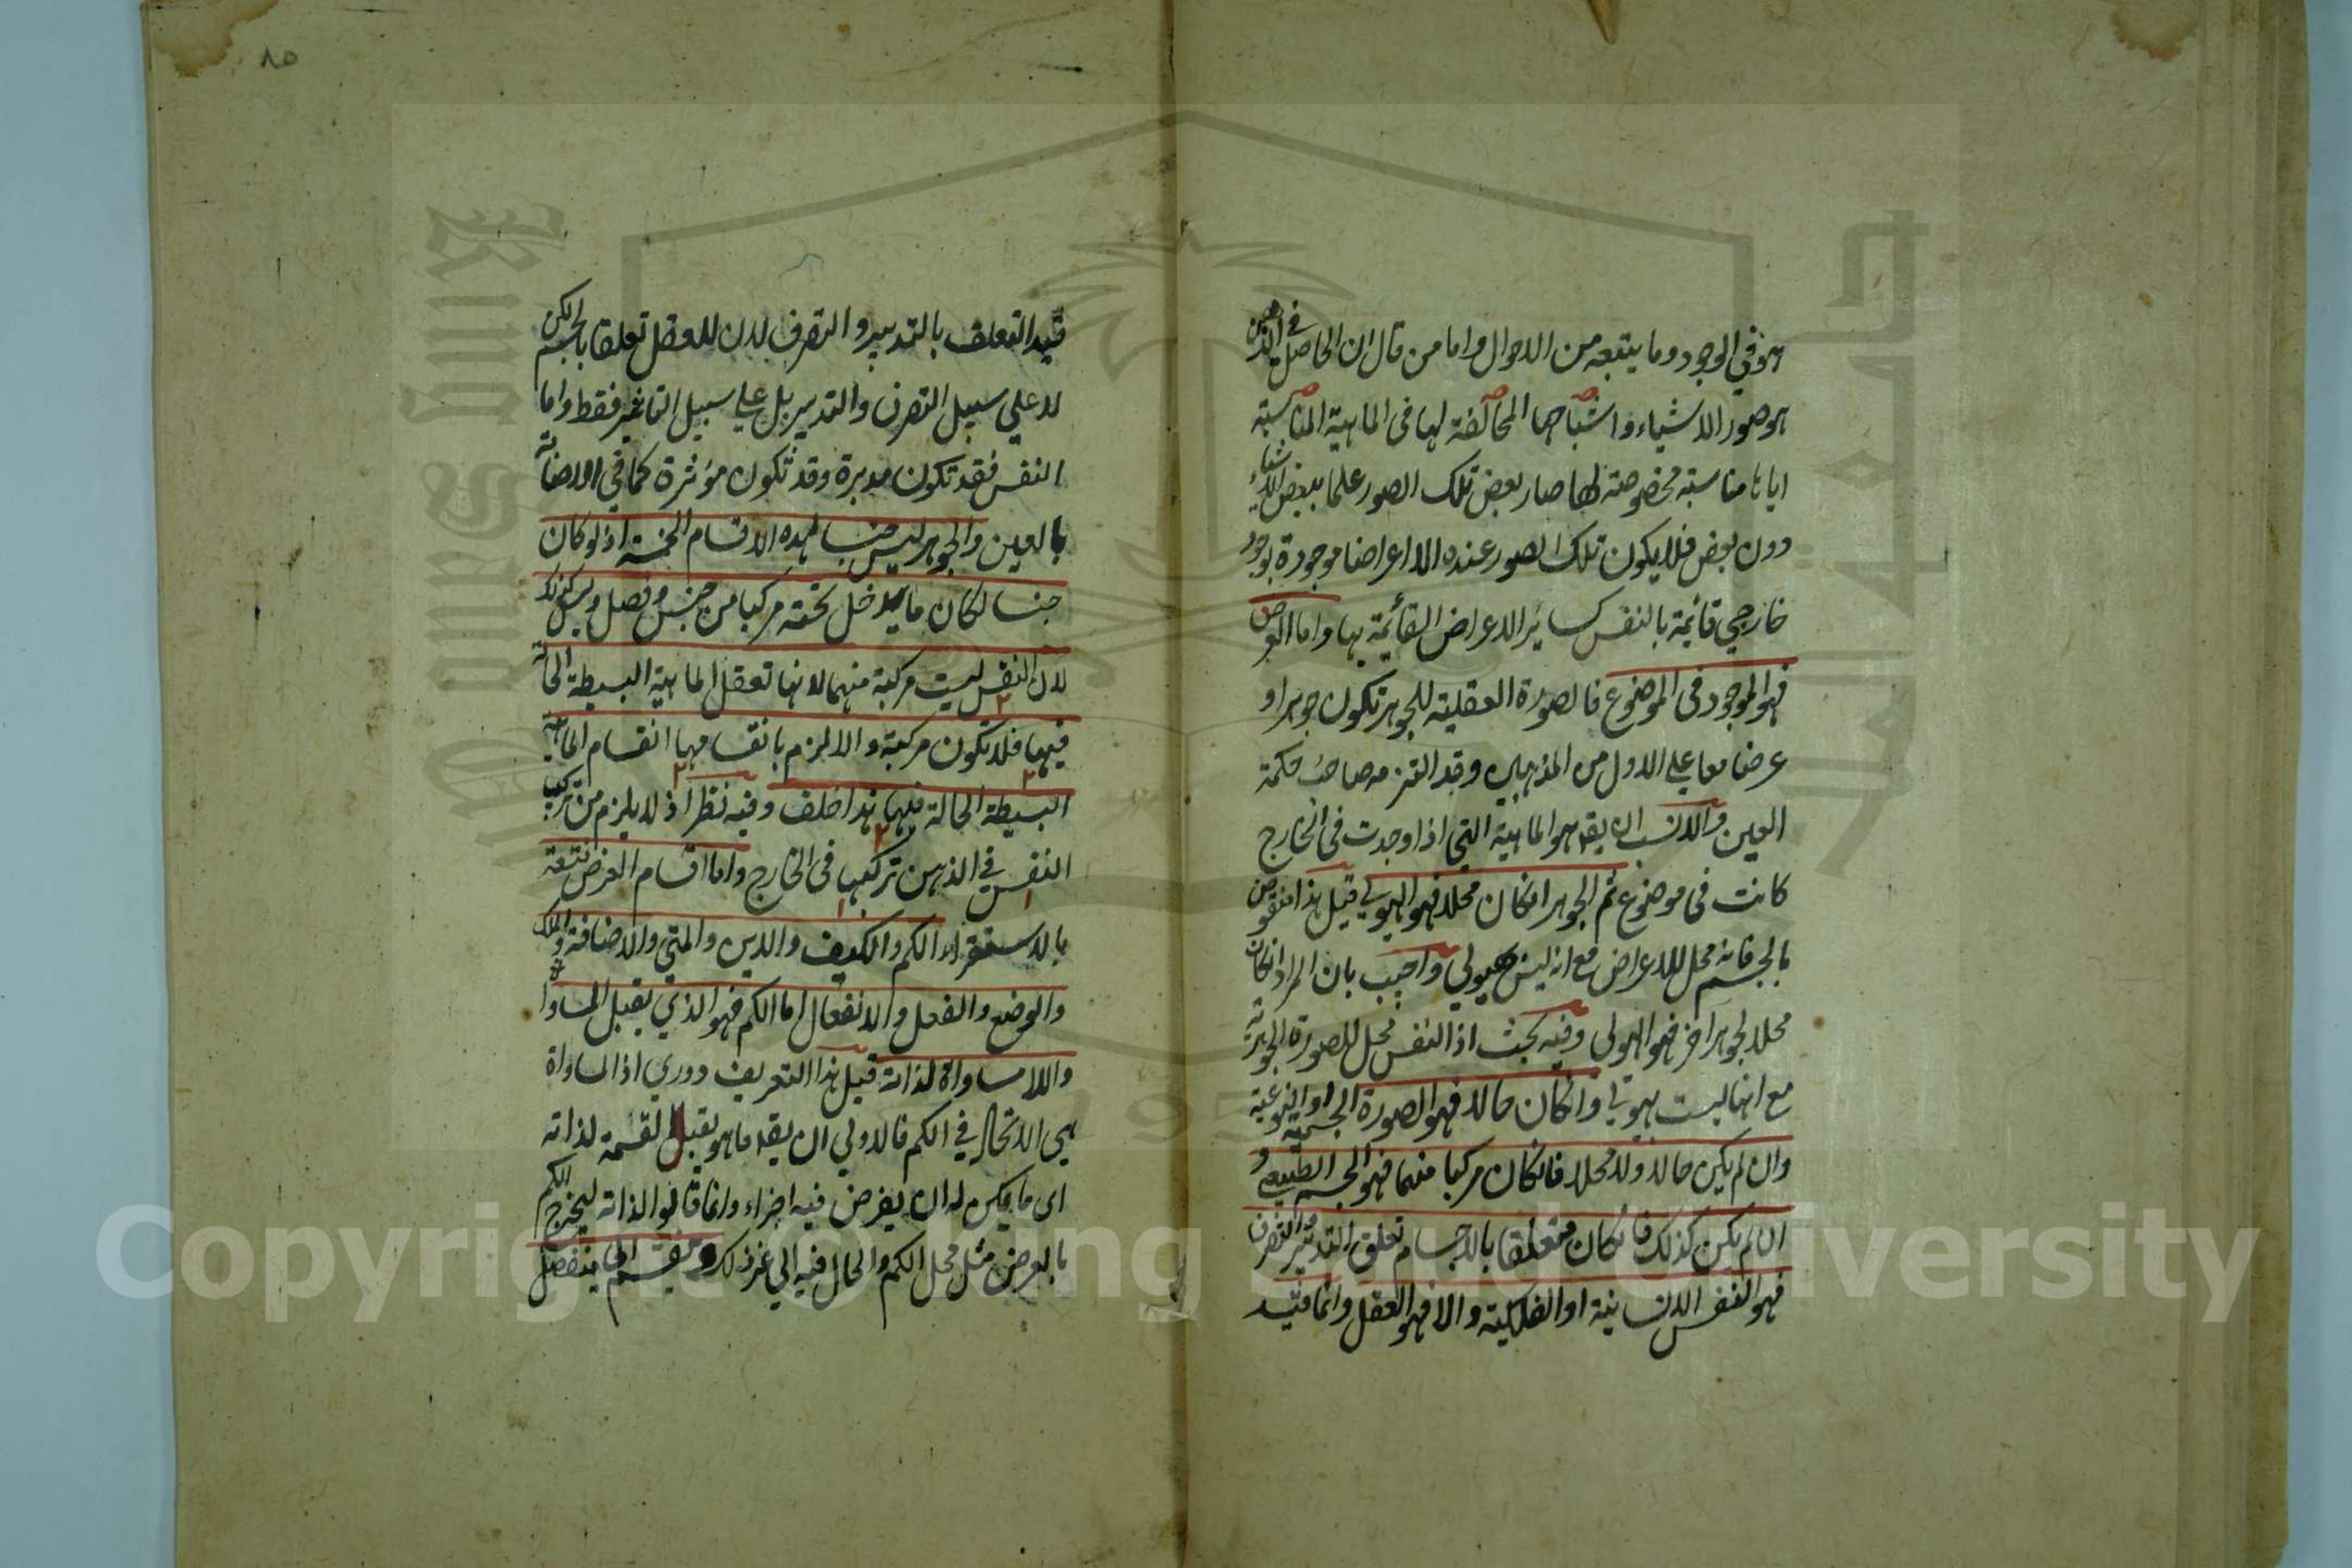 هو في الوجود وما يتبعه من الاحوال واما من قال ان الحاصل في الذهن
هو صور الاشياء واشباحها المخالفة لها في الماهية المناسبة
اياها مناسبة مخصوصة لها صار بعض تلك الصور علما ببعض الاشياء
دون بعض فلا يكون تلك الصور عنده الا اعراضا موجودة بوجود
خارجي قائمة بالنفس كسائر الاعراض القائمة بها واما العرض
فهو الموجود في الموضوع فالصورة العقلية للجوهر تكون جوهرا و
عرضا معا علي الاول من المذهبين وقد التزمه صاحب حكمة
العين والانسب ان يقه هو الماهية التي اذا وجدت في الخارج
كانت في موضوع ثم الجوهر انكان محلا فهو الهيولي قيل هذا منقوض
بالجسم فانه محل للاعراض مع انه ليس هيولي واجيب بان المراد انكان
محلا لجوهر اخر فهو الهولى وفيه بحث اذ النفس محل للصورة الجوهرية
مع انها ليست بهيولي وانكان حالا فهو الصورة الجسمية او النوعية
وان لم يكن حالا ولا محلا فانكان مركبا منهما فهو الجسم الطبيعي و
ان لم يكن كذلك فانكان متعلقا بالاجسام تعلق التدبير والتصرف
فهو النفس الانسانية او الفلكية والا فهو العقل وانما قيد
٨٥
قيد التعلق بالتدبير والتصرف لان للعقل تعلقا بالجسم لكن
لا علي سبيل التصرف والتدبير بل علي سبيل التاثير فقط واما
النفس فقد تكون مدبرة وقد تكون مؤثرة كما في الاصابة
بالعين والجوهر ليس جنسا لهذه الاقسام الخمسة اذ لو كان
جنسا لكان ما يدخل تحته مركبا من جنس وفصل وليس كذلك
لان النفس ليست مركبة منهما لانها تعقل الماهية البسيطة الحالة
فيها فلا تكون مركبة والا لزم بانقسامها انقسام الماهية
البسيطة الحالة فيها هذا خلف وفيه نظر اذ لا يلزم من تركيب
النفس في الذهن تركيبها في الخارج واما اقسام العرض فتسعة
بالاستقراء الكم والكيف والاين والمتي والاضافة والملك
والوضع والفعل والانفعال اما الكم فهو الذي يقبل المساواة
واللامساواة لذاته قيل هذا التعريف دوري اذ المساواة
هي الاتحاد في الكم فالاولي ان يقه ما هو يقبل القسمة لذاته
اى ما يمكن له ان يفرض فيه اجزاء وانما قالوا لذاته ليخرج الكم
بالعرض مثل محل الكم والحال فيه الي غير ذلك وينقسم الي منفصل
Copyright © King Saud University
King Saud University
1957